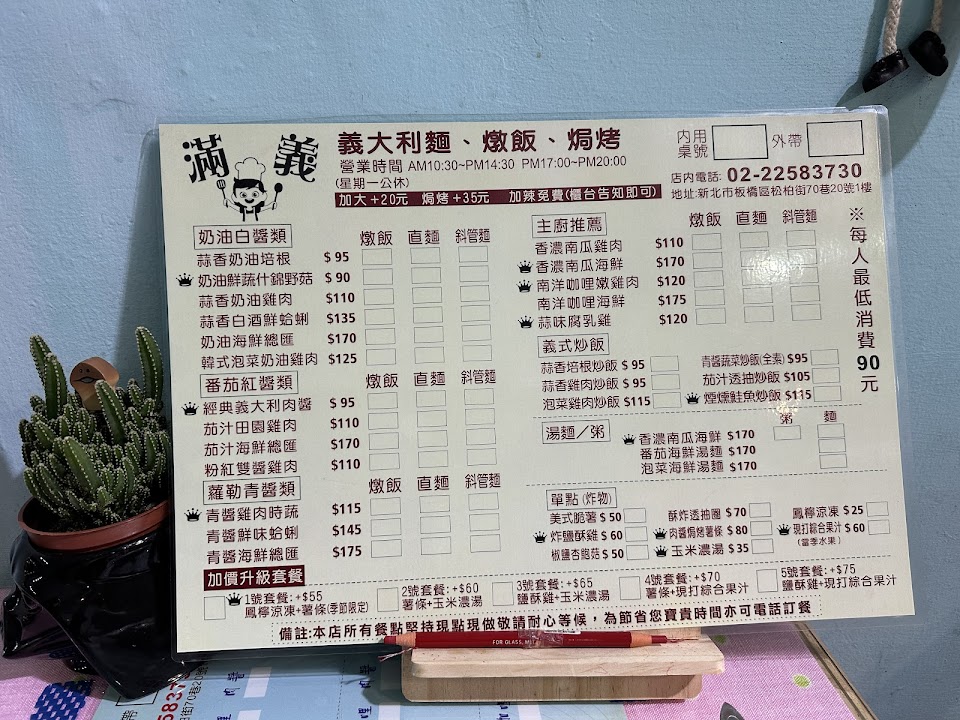 滿義
義大利麵、燉飯、焗烤
營業時間 AM10:30~PM14:30 PM17:00~PM20:00
(星期一公休)
加大+20元 焗烤+35元 加辣免費(櫃台告知即可)
內用桌號 外帶
店內電話: 02-22583730
地址:新北市板橋區松柏街70巷20號1樓
※每人最低消費90元
奶油白醬類 燉飯 直麵 斜管麵
蒜香奶油培根 $95
奶油鮮蔬什錦野菇 $90
蒜香奶油雞肉 $110
蒜香白酒鮮蛤蜊 $135
奶油海鮮總匯 $170
韓式泡菜奶油雞肉 $125
番茄紅醬類 燉飯 直麵 斜管麵
經典義大利肉醬 $95
茄汁田園雞肉 $110
茄汁海鮮總匯 $170
粉紅雙醬雞肉 $110
蘿勒青醬類 燉飯 直麵 斜管麵
青醬雞肉時蔬 $115
青醬鮮味蛤蜊 $145
青醬海鮮總匯 $175
主廚推薦 燉飯 直麵 斜管麵
香濃南瓜雞肉 $110
香濃南瓜海鮮 $170
南洋咖哩嫩雞肉 $120
南洋咖哩海鮮 $175
蒜味腐乳雞 $120
義式炒飯
蒜香培根炒飯 $95
蒜香雞肉炒飯 $95
泡菜雞肉炒飯 $115
青醬蔬菜炒飯(全素) $95
茄汁透抽炒飯 $105
煙燻鮭魚炒飯 $115
湯麵/粥 粥 麵
香濃南瓜海鮮 $170
番茄海鮮湯麵 $170
泡菜海鮮湯麵 $170
單點(炸物)
美式脆薯 $50
炸鹽酥雞 $60
椒鹽杏鮑菇 $50
酥炸透抽圈 $70
肉醬焗烤薯條 $80
玉米濃湯 $35
鳳檸涼凍 $25
現打綜合果汁 $60
(當季水果)
加價升級套餐
1號套餐:+$55
鳳檸涼凍+薯條(季節限定)
2號套餐:+$60
薯條+玉米濃湯
3號套餐:+$65
鹽酥雞+玉米濃湯
4號套餐:+$70
薯條+現打綜合果汁
5號套餐:+$75
鹽酥雞+現打綜合果汁
備註:本店所有餐點堅持現點現做敬請耐心等候，為節省您寶貴時間亦可電話訂餐
FOR GLASS,